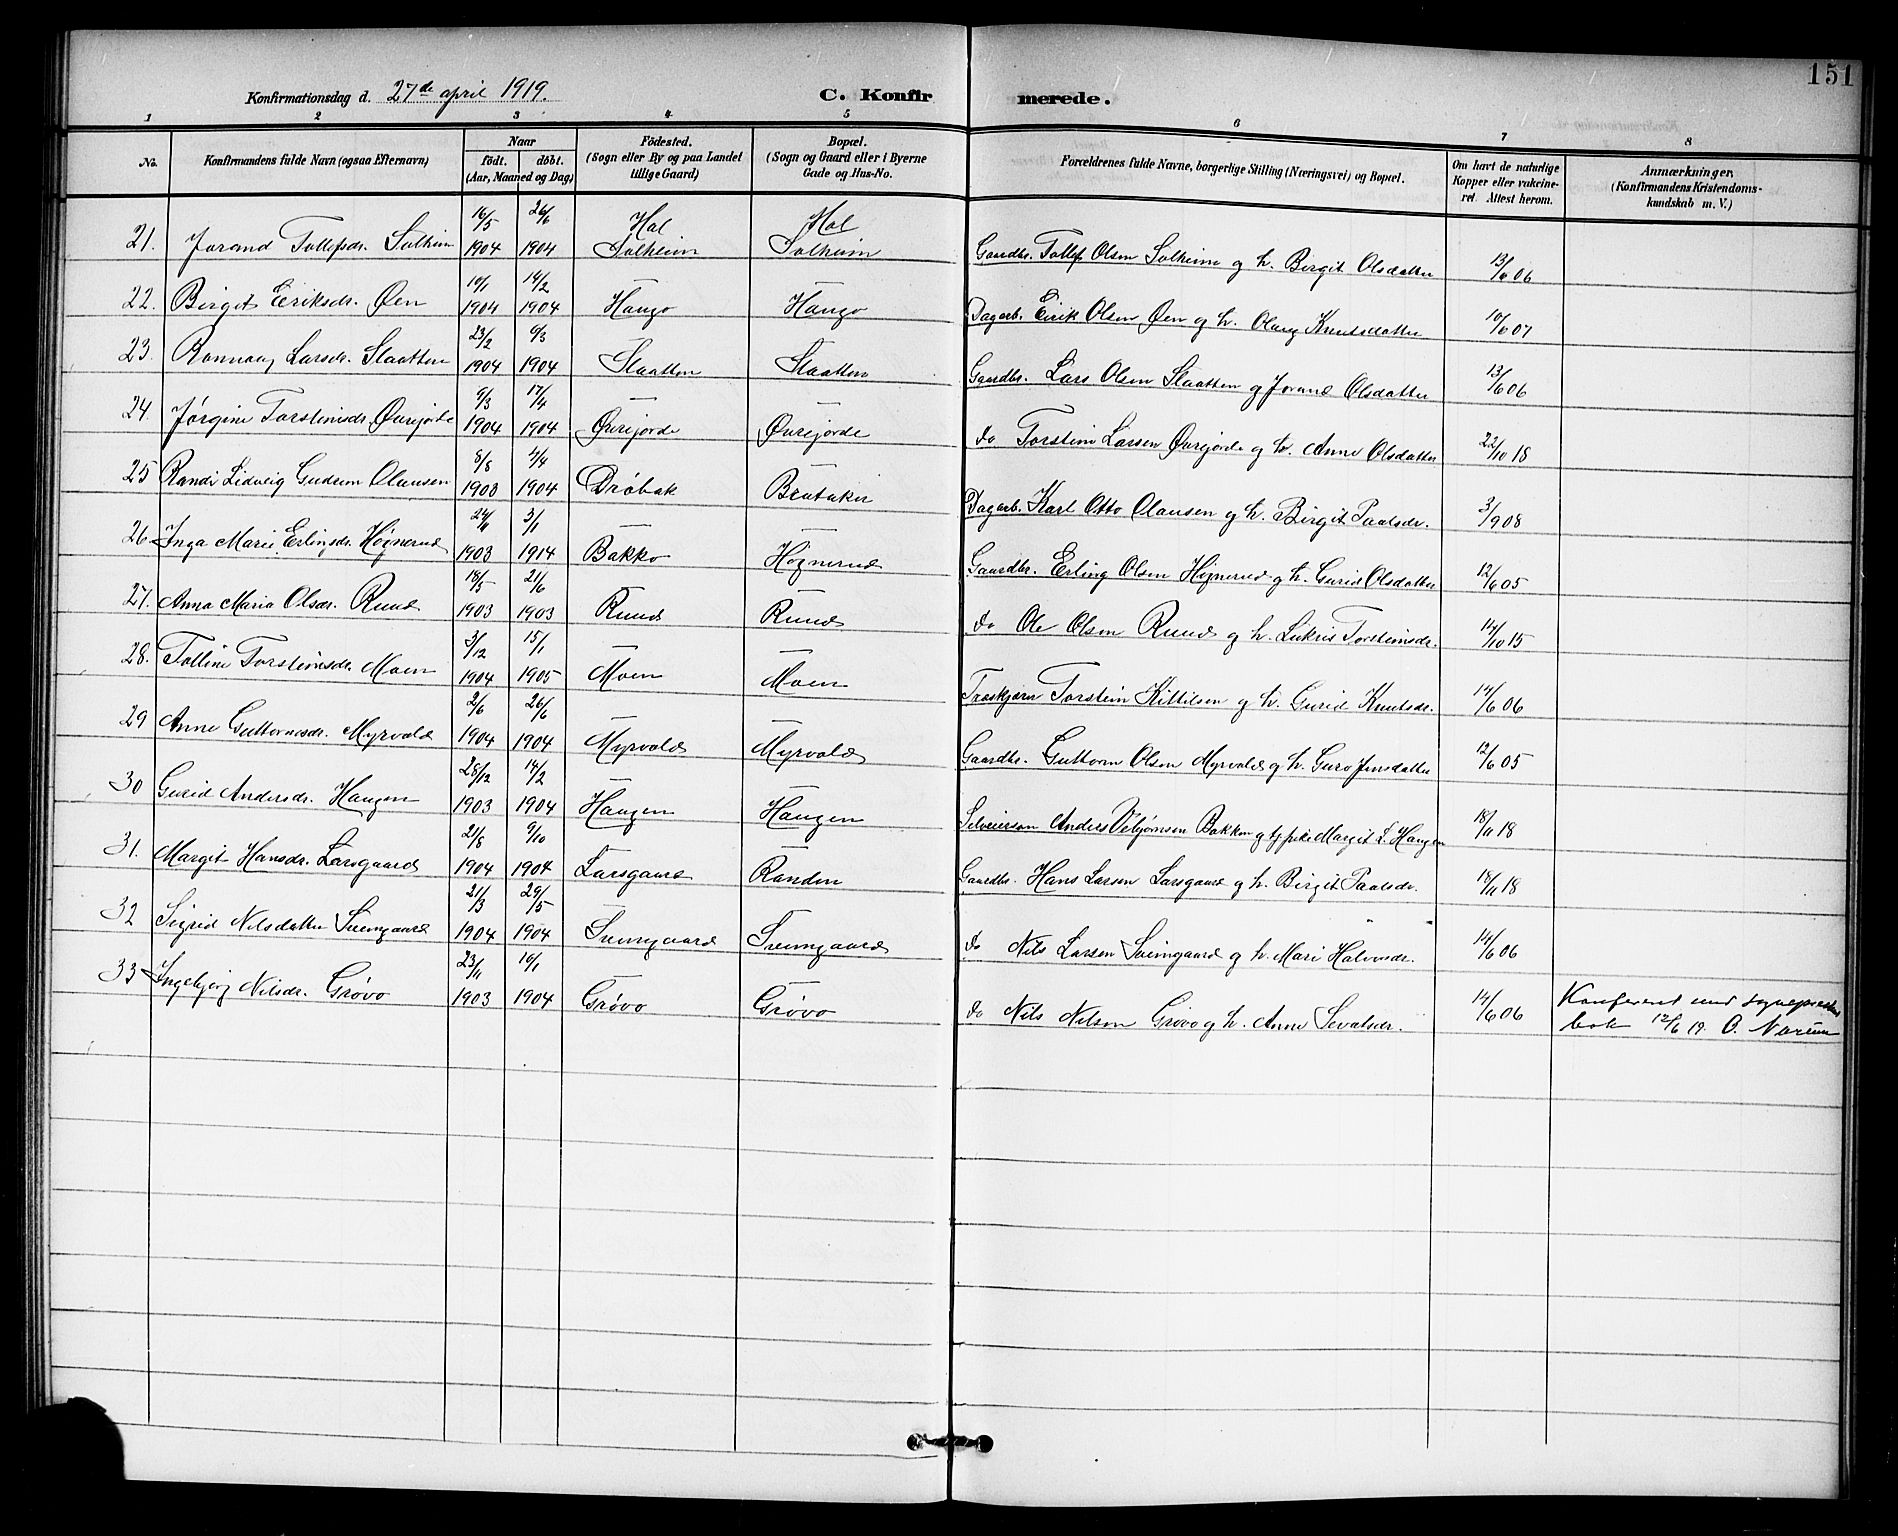 151
Konfirmationsdag d. 27de april 1919.
C. Konfirmerede.
1 2 3 4 5 6 7 8
No.
Konfirmandens fulde Navn (ogsaa Efternavn)
Naar
født. døbt.
(Aar, Maaned og Dag)
Födested.
(Sogn eller By og paa Landet
tillige Gaard)
Bopæl.
(Sogn og Gaard eller i Byerne
Gade og Hus-No.
Forældrenes fulde Navne, borgerlige Stilling (Næringsvei) og Bopæl.
Om havt de naturlige
Kopper eller vakcine-
ret. Attest herom.
Anmærkninger.
(Konfirmandens Kristendoms-
kundskab m. V.)
21. Jorand Tollefsdr. Solheim 16/5 1904 26/6 1904 Hol Solheim Hol Solheim Gaardbr. Tollef Olsen Solheim og h. Birgit Olsdatter 13/6 06
22. Birgit Eriksdr. Øen 10/1 1904 14/2 1904 Haugo Haugo Dagarb. Eirik Olsen Øen og h. Olaug Knutsdatter 10/6 07
23. Rannaug Larsdr. Slaatten 23/2 1904 6/3 1904 Slaatten Slaatten Gaardbr. Lars Olsen Slaatten og Jorand Olsdatter 13/6 06
24. Jørgine Torsteinsdr. Øvrejorde 9/3 1904 17/4 1904 Øvrejorde Øvrejorde do Torstein Larsen Øvrejorde og h. Anne Olsdatter 22/10 18
25 Randi Lidveig Gudrun Olausen 8/8 1903 4/4 1904 Drøbak Brataker Dagarb. Karl Otto Olausen og h. Birgit Paalsdr. 3/9 08
26 Inga Marie Erlingsdr. Høgnerud 24/11 1903 3/1 1914 Bakko Høgnerud Gaardbr. Erling Olsen Høgnerud og h. Gurid Olsdatter 12/6 05
27. Anna Maria Olsdr. Ruud 18/5 1903 21/6 1903 Ruud Ruud do Ole Olsen Ruud og h. Lukris Torsteinsdr. 14/10 15
28. Tolline Torsteinsdr. Moen 3/12 1904 15/1 1905 Moen Moen Træskjærer Torstein Kittilsen og h. Gurid Knutsdr. 14/6 06
29 Anne Guttormsdr. Myrvold 2/6 1904 26/6 1904 Myrvold Myrvold Gaardbr. Guttorm Olsen Myrvold og h. Guro Jensdatter 12/6 05
30 Gurid Andersdr. Haugen 28/12 1903 14/2 1904 Haugen Haugen Selveierson Anders Vebjørnsen Bakken og tj.pike Margit L. Haugen 18/11 18
31. Margit Hansdr. Larsgaard 21/8 1904 9/10 1904 Larsgaard Randen Gaardbr. Hans Larsen Larsgaard og h. Birgit Paalsdr. 18/11 18
32 Sigrid Nilsdatter Sveingaard 21/3 1904 29/5 1904 Sveingaard Sveingaard do Nils Larsen Sveingaard og h. Mari Halvorsdr. 14/6 06
33 Ingebjørg Nilsdr. Grøvo 23/11 1903 10/1 1904 Grøvo Grøvo do Nils Nilsen Grøvo og h. Anne Sevatsdr. 14/6 06 Konfereret med sogneprestens
bok 12/6 19. O. Norum